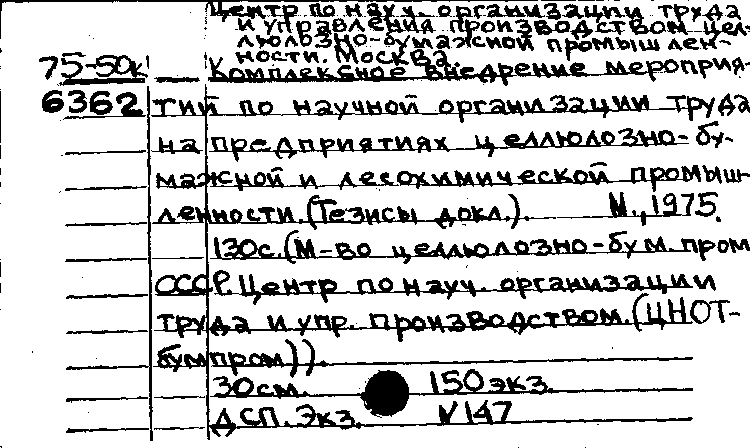 Центр по науч. организации труда
и управления производством цел-
люлозно-бумажной промышлен-
ности. Москва.
75-50к Комплексное внедрение мероприя-
6362 тий по научной организации труда
на предприятиях целлюлозно-бу-
мажной и лесохимической промыш-
ленности. (Тезисы докл.). М., 1975.
130с. (М-во целлюлозно-бум. пром
СССР. Центр по науч. организации
труда и упр. производством. (ЦНОТ-
бумпром)).
30см. 150экз.
ДСП. Экз. №147